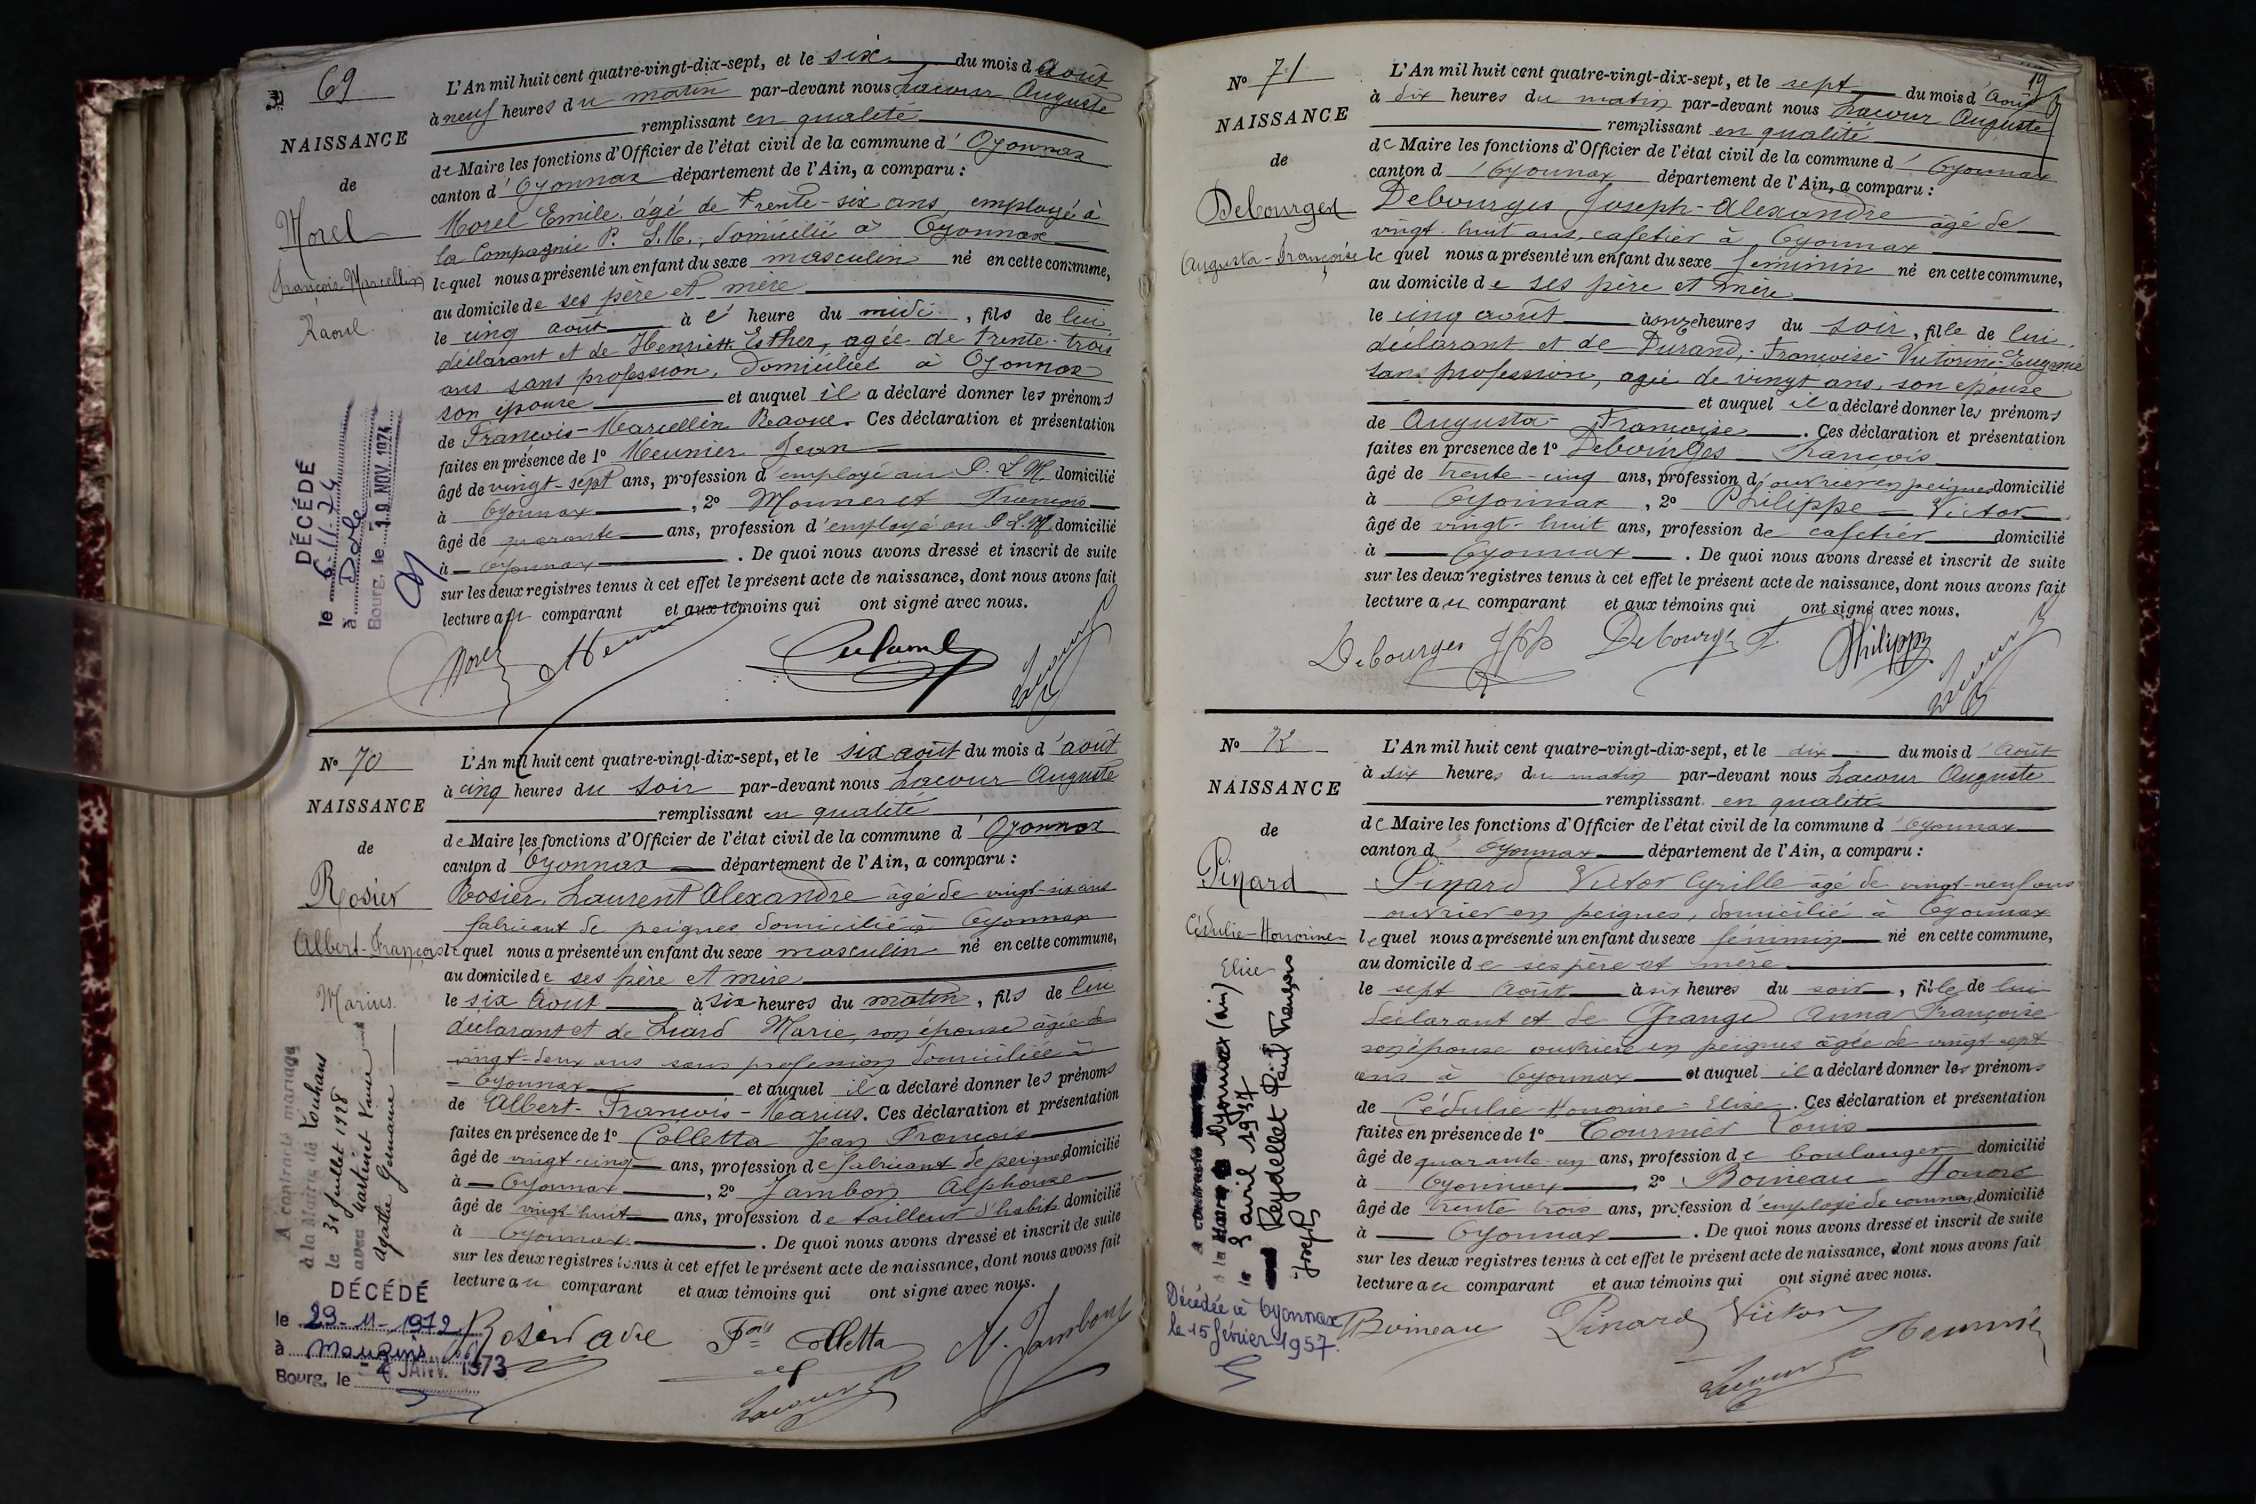 69
NAISSANCE
de
Morel
François Marcellin
Raoul
DÉCÉDÉ
le 6.11.74
à Dole
Bourg, le 19 NOV. 1974
L'An mil huit cent quatre-vingt-dix-sept, et le six du mois d'août
à neuf heures du matin par-devant nous Lacour Auguste
remplissant en qualité
de Maire les fonctions d'Officier de l'état civil de la commune d'Oyonnax
canton d'Oyonnax département de l'Ain, a comparu :
Morel Emile, âgé de trente-six ans employé à
la Compagnie P. L. M., domicilié à Oyonnax
lequel nous a présenté un enfant du sexe masculin né en cette commune,
au domicile de ses père et mère
le cinq août à heure du midi, fils de lui
déclarant et de Esther, agée de trente-trois
ans sans profession, domiciliée à Oyonnax
son épouse et auquel il a déclaré donner les prénoms
de François-Marcellin Raoul. Ces déclaration et présentation
faites en présence de 1° Meunier Jean
âgé de vingt-sept ans, profession d'employé au P. L. M. domicilié
à Oyonnax, 2° François
âgé de quarante ans, profession d'employé au P. L. M. domicilié
à Oyonnax. De quoi nous avons dressé et inscrit de suite
sur les deux registres tenus à cet effet le présent acte de naissance, dont nous avons fait
lecture au comparant et aux témoins qui ont signé avec nous.
Morel
N° 70
NAISSANCE
de
Rosier
Albert-François
Marius
A contracté mariage
à la Mairie de Louhans
le 31 juillet 1928
avec Martinet
Agathe Germaine
DÉCÉDÉ
le 29-11-1972
à Mougins
Bourg, le JANV. 1973
L'An mil huit cent quatre-vingt-dix-sept, et le six août du mois d'août
à cinq heures du soir par-devant nous Lacour Auguste
remplissant en qualité
de Maire les fonctions d'Officier de l'état civil de la commune d'Oyonnax
canton d Oyonnax département de l'Ain, a comparu :
Rosier, Laurent Alexandre âgé de vingt-six ans
fabricant de peignes domicilié à Oyonnax
lequel nous a présenté un enfant du sexe masculin né en cette commune,
au domicile de ses père et mère
le six Août à six heures du matin, fils de lui
déclarant et de Marie, son épouse âgée de
vingt-deux ans sans profession domiciliée à
Oyonnax et auquel il a déclaré donner les prénoms
de Albert-François-Marius. Ces déclaration et présentation
faites en présence de 1° Colletta Jean François
âgé de vingt-cinq ans, profession de fabricant de peignes domicilié
à Oyonnax, 2° Jambon Alphonse
âgé de vingt-huit ans, profession de tailleur d'habits domicilié
à Oyonnax. De quoi nous avons dressé et inscrit de suite
sur les deux registres tenus à cet effet le présent acte de naissance, dont nous avons fait
lecture au comparant et aux témoins qui ont signé avec nous.
Colletta Jambon
Lacour
19
N° 71
NAISSANCE
de
Debourges
Augusta-Françoise
L'An mil huit cent quatre-vingt-dix-sept, et le sept du mois d'Août
à dix heures du matin par-devant nous Lacour Auguste
remplissant en qualité
de Maire les fonctions d'Officier de l'état civil de la commune d'Oyonnax
canton d'Oyonnax département de l'Ain, a comparu :
Debourges Joseph-Alexandre âgé de
vingt-huit ans, cafetier à Oyonnax
lequel nous a présenté un enfant du sexe féminin né en cette commune,
au domicile de ses père et mère
le cinq août à onze heures du soir, fille de lui
déclarant et de Durand, Françoise-Victorine-Eugénie
sans profession, agée de vingt ans, son épouse
et auquel il a déclaré donner les prénoms
de Augusta-Françoise. Ces déclaration et présentation
faites en présence de 1° Debourges François
âgé de trente-cinq ans, profession d'ouvrier en peignes domicilié
à Oyonnax, 2° Philippe Victor
âgé de vingt-huit ans, profession de cafetier domicilié
à Oyonnax. De quoi nous avons dressé et inscrit de suite
sur les deux registres tenus à cet effet le présent acte de naissance, dont nous avons fait
lecture au comparant et aux témoins qui ont signé avec nous.
Debourges Debourges F. Philippe
N° 72
NAISSANCE
de
Pinard
Cédulie-Honorine
Elise
A contracté
à la Oyonnax (ain)
le 3 avril 1937
Reydellet Paul François
Joseph
Décédée à Oyonnax
le 15 février 1957.
L'An mil huit cent quatre-vingt-dix-sept, et le dix du mois d'Août
à dix heures du matin par-devant nous Lacour Auguste
remplissant en qualité
de Maire les fonctions d'Officier de l'état civil de la commune d'Oyonnax
canton d'Oyonnax département de l'Ain, a comparu :
Pinard Victor Cyrille âgé de vingt-neuf ans
ouvrier en peignes, domicilié à Oyonnax
lequel nous a présenté un enfant du sexe féminin né en cette commune,
au domicile de ses père et mère
le sept Août à six heures du soir, fille de lui
déclarant et de Grange Anna Françoise
son épouse ouvrière en peignes âgée de vingt-sept
ans à Oyonnax et auquel il a déclaré donner les prénoms
de Cédulie-Honorine-Elise. Ces déclaration et présentation
faites en présence de 1° Louis
âgé de quarante-un ans, profession de boulanger domicilié
à Oyonnax, 2° Boineau Honoré
âgé de trente trois ans, profession d'employé de domicilié
à Oyonnax. De quoi nous avons dressé et inscrit de suite
sur les deux registres tenus à cet effet le présent acte de naissance, dont nous avons fait
lecture au comparant et aux témoins qui ont signé avec nous.
Boineau Pinard Victor
Lacour